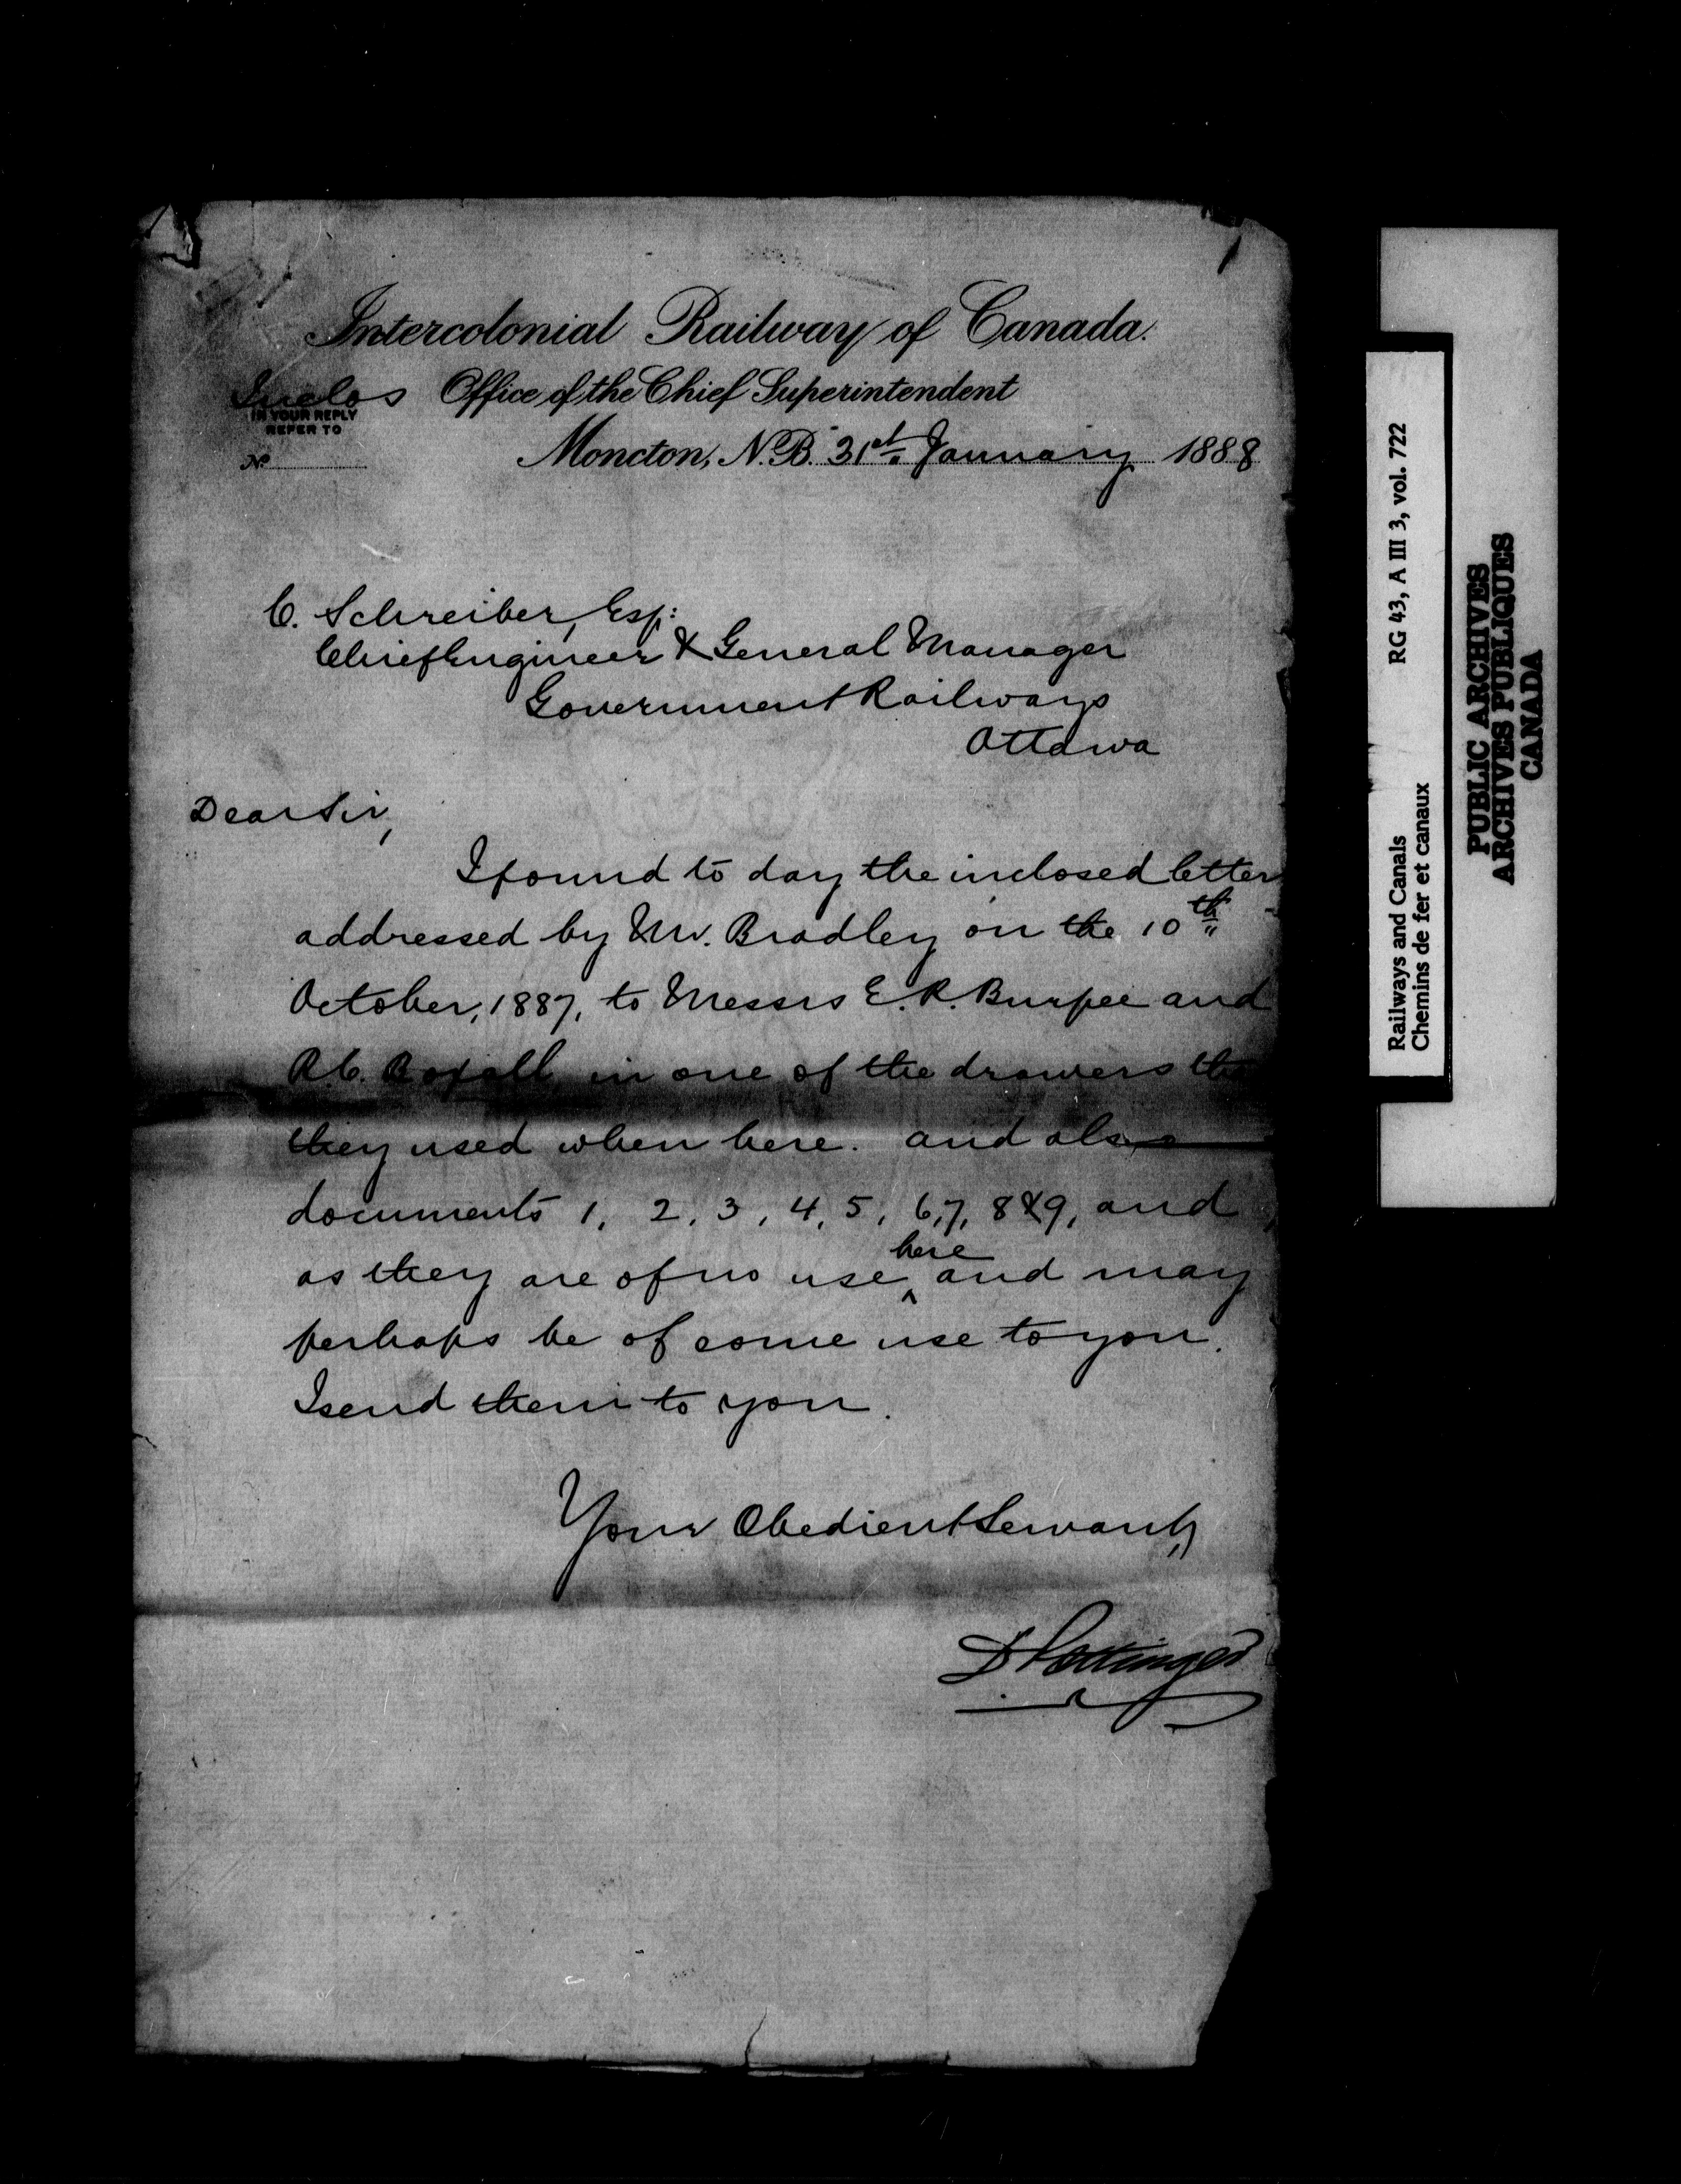 Intercolonial Railway of Canada.
Inclos Office of the Chief Superintendent
IN YOUR REPLY
REFER TO
No
Moncton, N.B. 31st January 1888
C. Schreiber, Esq:
Chief Engineer & General Manager
Government Railways
Ottawa
Dear Sir,
I found to day the inclosed letter
addressed by Mr. Bradley on the 10th
October, 1887, to Messrs E. R. Burpee and
R.C. Boxall in one of the drawers
they used when here. and also
documents 1, 2, 3, 4, 5, 6, 7, 8 & 9, and
as they are of no use here and may
perhaps be of some use to you.
I send them to you.
Your Obedient Servant,
D Pottinger
Railways and Canals RG 43, A III 3, vol. 722
Chemins de fer et canaux
PUBLIC ARCHIVES
ARCHIVES PUBLIQUES
CANADA